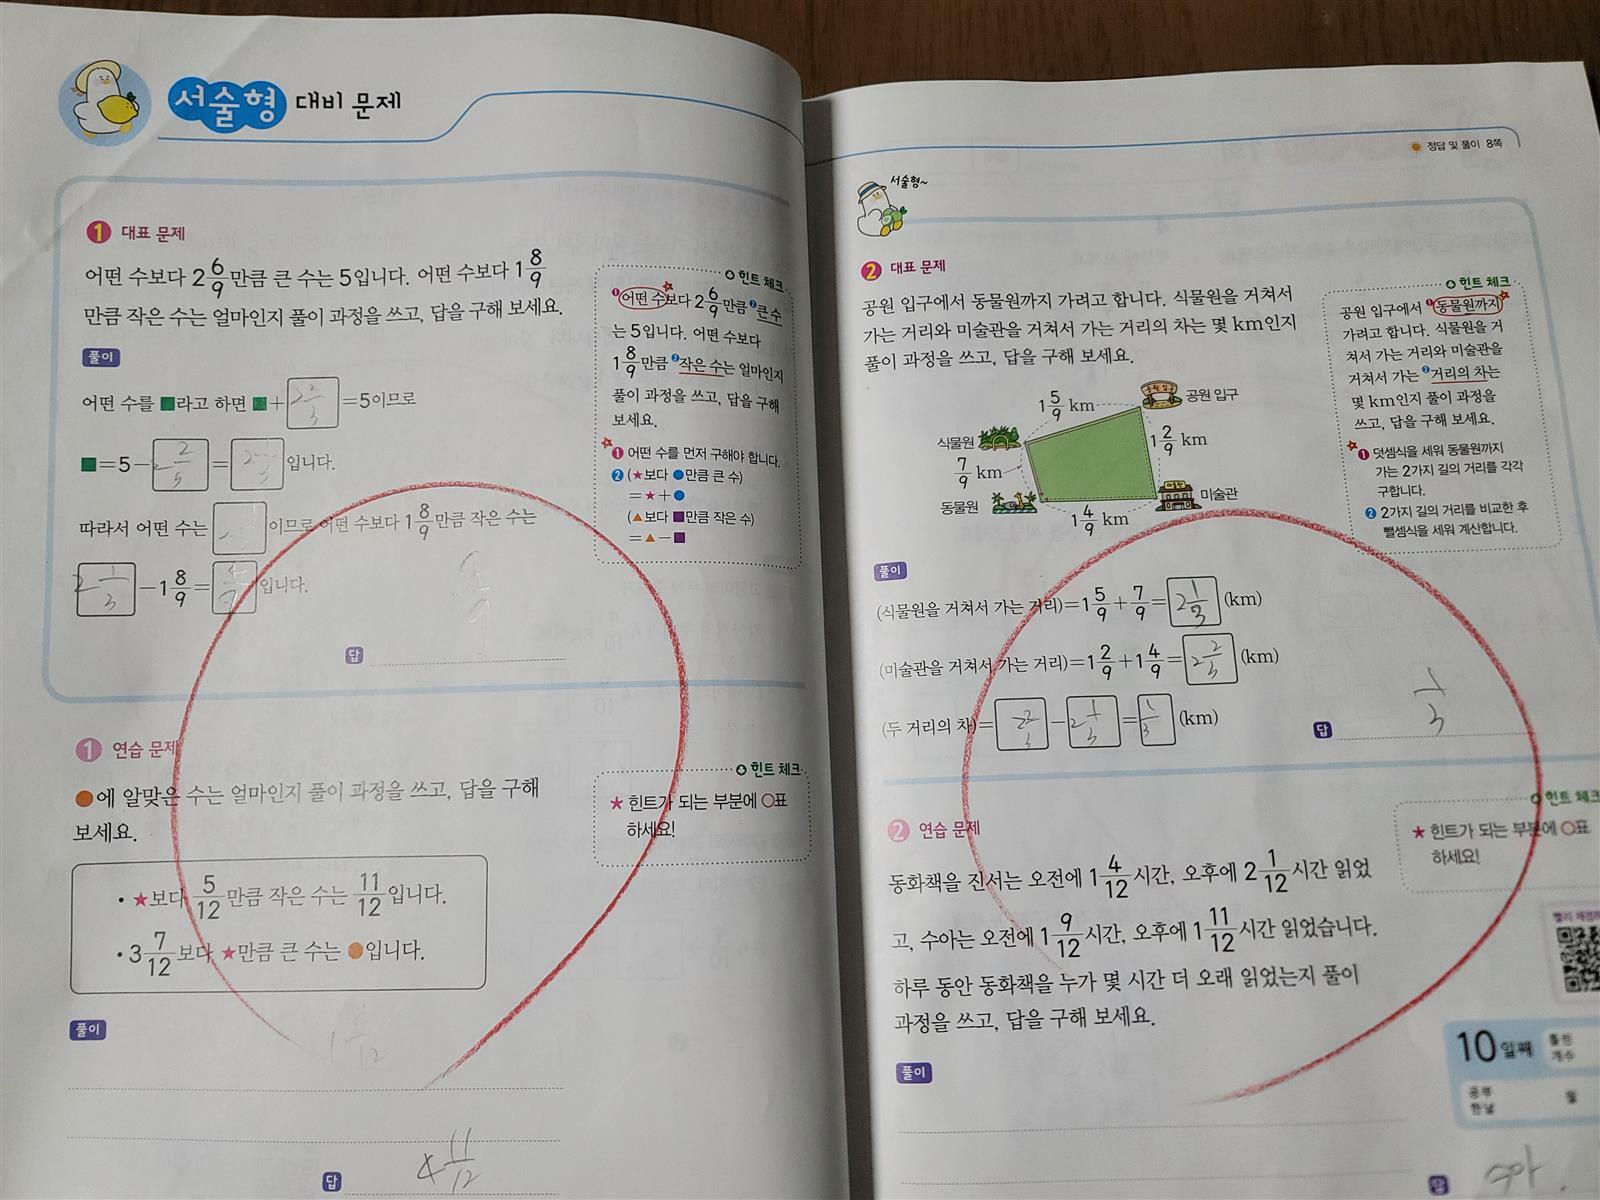 서술형 대비 문제
1 대표 문제
어떤 수보다 2 6/9만큼 큰 수는 5입니다. 어떤 수보다 1 8/9
만큼 작은 수는 얼마인지 풀이 과정을 쓰고, 답을 구해 보세요.
풀이
어떤 수를 ■라고 하면 ■+ 2 2/3 =5이므로
■=5- 2 2/5 = 2 1/3 입니다.
따라서 어떤 수는 이므로 어떤 수보다 1 8/9만큼 작은 수는
2 1/3 -1 8/9= 4/9 입니다.
답
힌트 체크
❶어떤 수보다 2 6/9만큼 ❷큰 수
는 5입니다. 어떤 수보다
1 8/9만큼 ❷작은 수는 얼마인지
풀이 과정을 쓰고, 답을 구해
보세요.
❶ 어떤 수를 먼저 구해야 합니다.
❷ (★보다 ●만큼 큰 수)
=★+●
(▲보다 ■만큼 작은 수)
=▲-■
1 연습 문제
●에 알맞은 수는 얼마인지 풀이 과정을 쓰고, 답을 구해
보세요.
• ★보다 5/12만큼 작은 수는 11/12입니다.
• 3 7/12보다 ★만큼 큰 수는 ●입니다.
힌트 체크
★ 힌트가 되는 부분에 ○표
하세요!
풀이
1 4/12
답 4 11/12
정답 및 풀이 8쪽
서술형~
2 대표 문제
공원 입구에서 동물원까지 가려고 합니다. 식물원을 거쳐서
가는 거리와 미술관을 거쳐서 가는 거리의 차는 몇 km인지
풀이 과정을 쓰고, 답을 구해 보세요.
공원 입구
1 5/9 km
공원 입구
식물원
1 2/9 km
7/9 km
미술관
동물원
미술관
1 4/9 km
힌트 체크
공원 입구에서 ❶동물원까지
가려고 합니다. 식물원을 거
쳐서 가는 거리와 미술관을
거쳐서 가는 ❷거리의 차는
몇 km인지 풀이 과정을
쓰고, 답을 구해 보세요.
❶ 덧셈식을 세워 동물원까지
가는 2가지 길의 거리를 각각
구합니다.
❷ 2가지 길의 거리를 비교한 후
뺄셈식을 세워 계산합니다.
풀이
(식물원을 거쳐서 가는 거리)=1 5/9+7/9= 2 1/3 (km)
(미술관을 거쳐서 가는 거리)=1 2/9+1 4/9= 2 2/3 (km)
(두 거리의 차)= 2 2/3 - 2 1/3 = 1/3 (km)
답 1/3
2 연습 문제
동화책을 진서는 오전에 1 4/12시간, 오후에 2 1/12시간 읽었
고, 수아는 오전에 1 9/12시간, 오후에 1 11/12시간 읽었습니다.
하루 동안 동화책을 누가 몇 시간 더 오래 읽었는지 풀이
과정을 쓰고, 답을 구해 보세요.
힌트 체크
★ 힌트가 되는 부분에 ○표
하세요!
풀이
10일째
틀린
개수
공부
한날
월
답 수아.